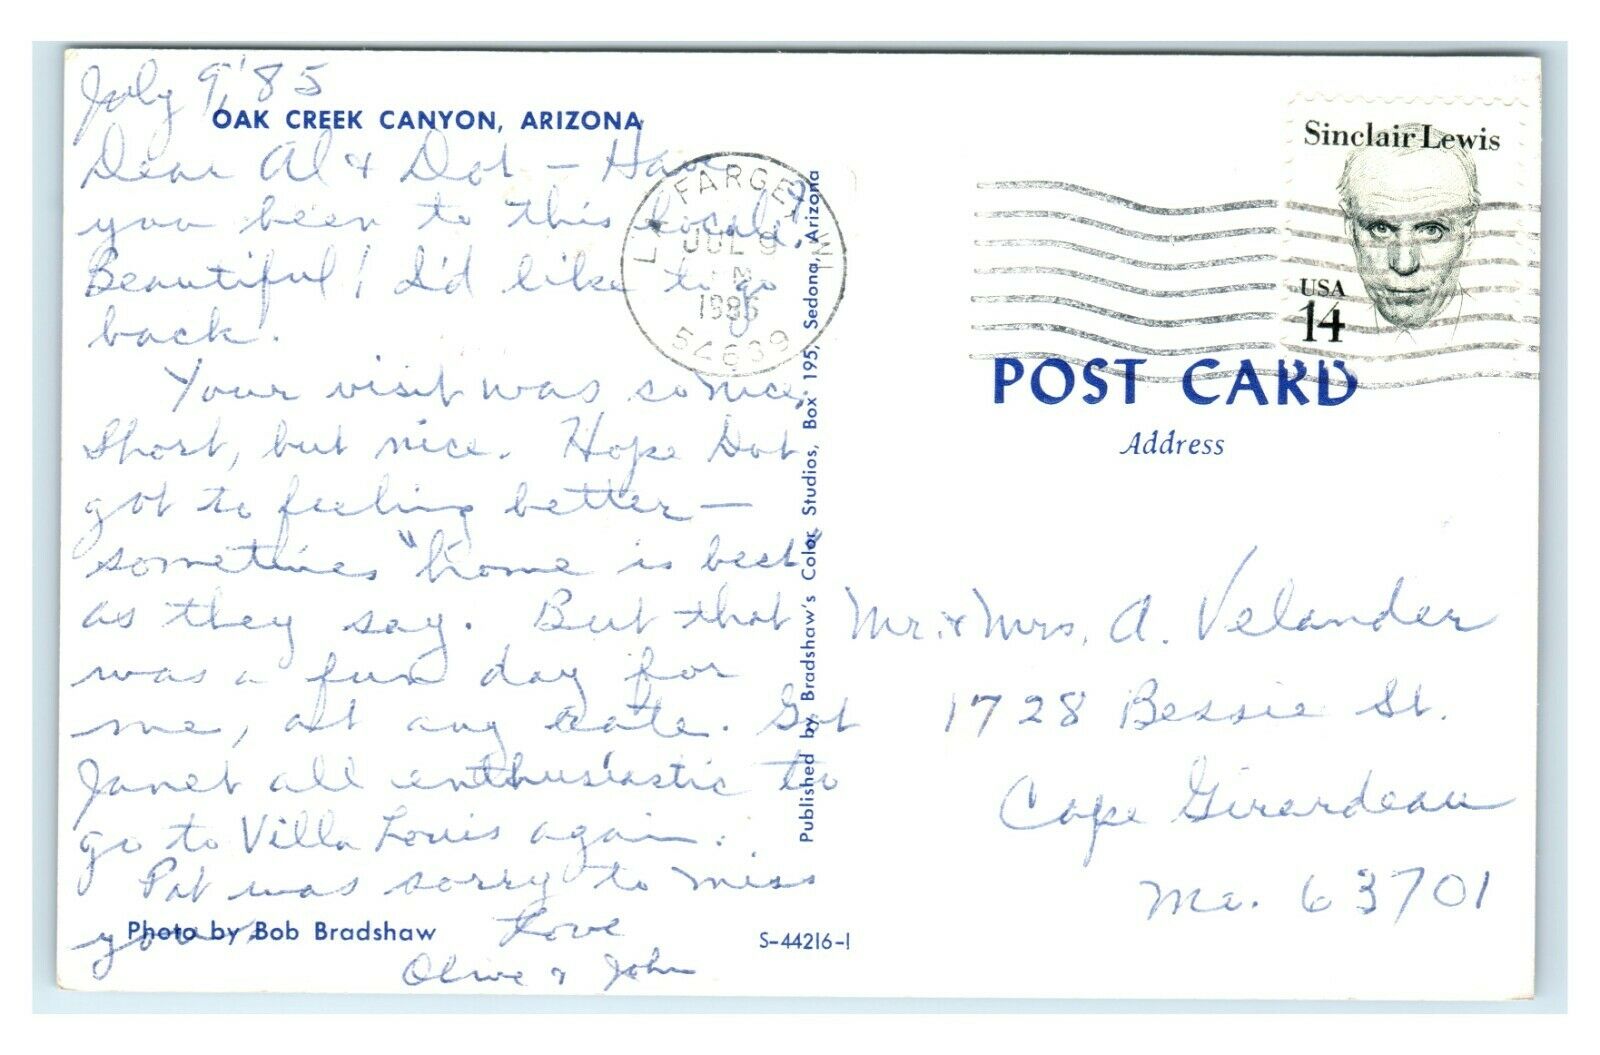 July 9, '85
OAK CREEK CANYON, ARIZONA
Dear Al & Dot - Have
you been to this locale?
Beautiful! I'd like to go
back.
Your visit was so nice.
Short, but nice. Hope Dot
got to feeling better -
sometimes "home is best"
as they say. But that
was a fun day for
me, at any rate. Got
Janet all enthusiastic to
go to Villa Louis again.
Pat was sorry to miss
you.
Love
Olive & John
Photo by Bob Bradshaw
S-44216-1
Published by Bradshaw's Color Studios, Box 195, Sedona, Arizona
LA FARGE, WI
JUL 9
1985
54639
Sinclair Lewis
USA
14
POST CARD
Address
Mr. & Mrs. A. Velander
1728 Bessie St.
Cape Girardeau
Mo. 63701